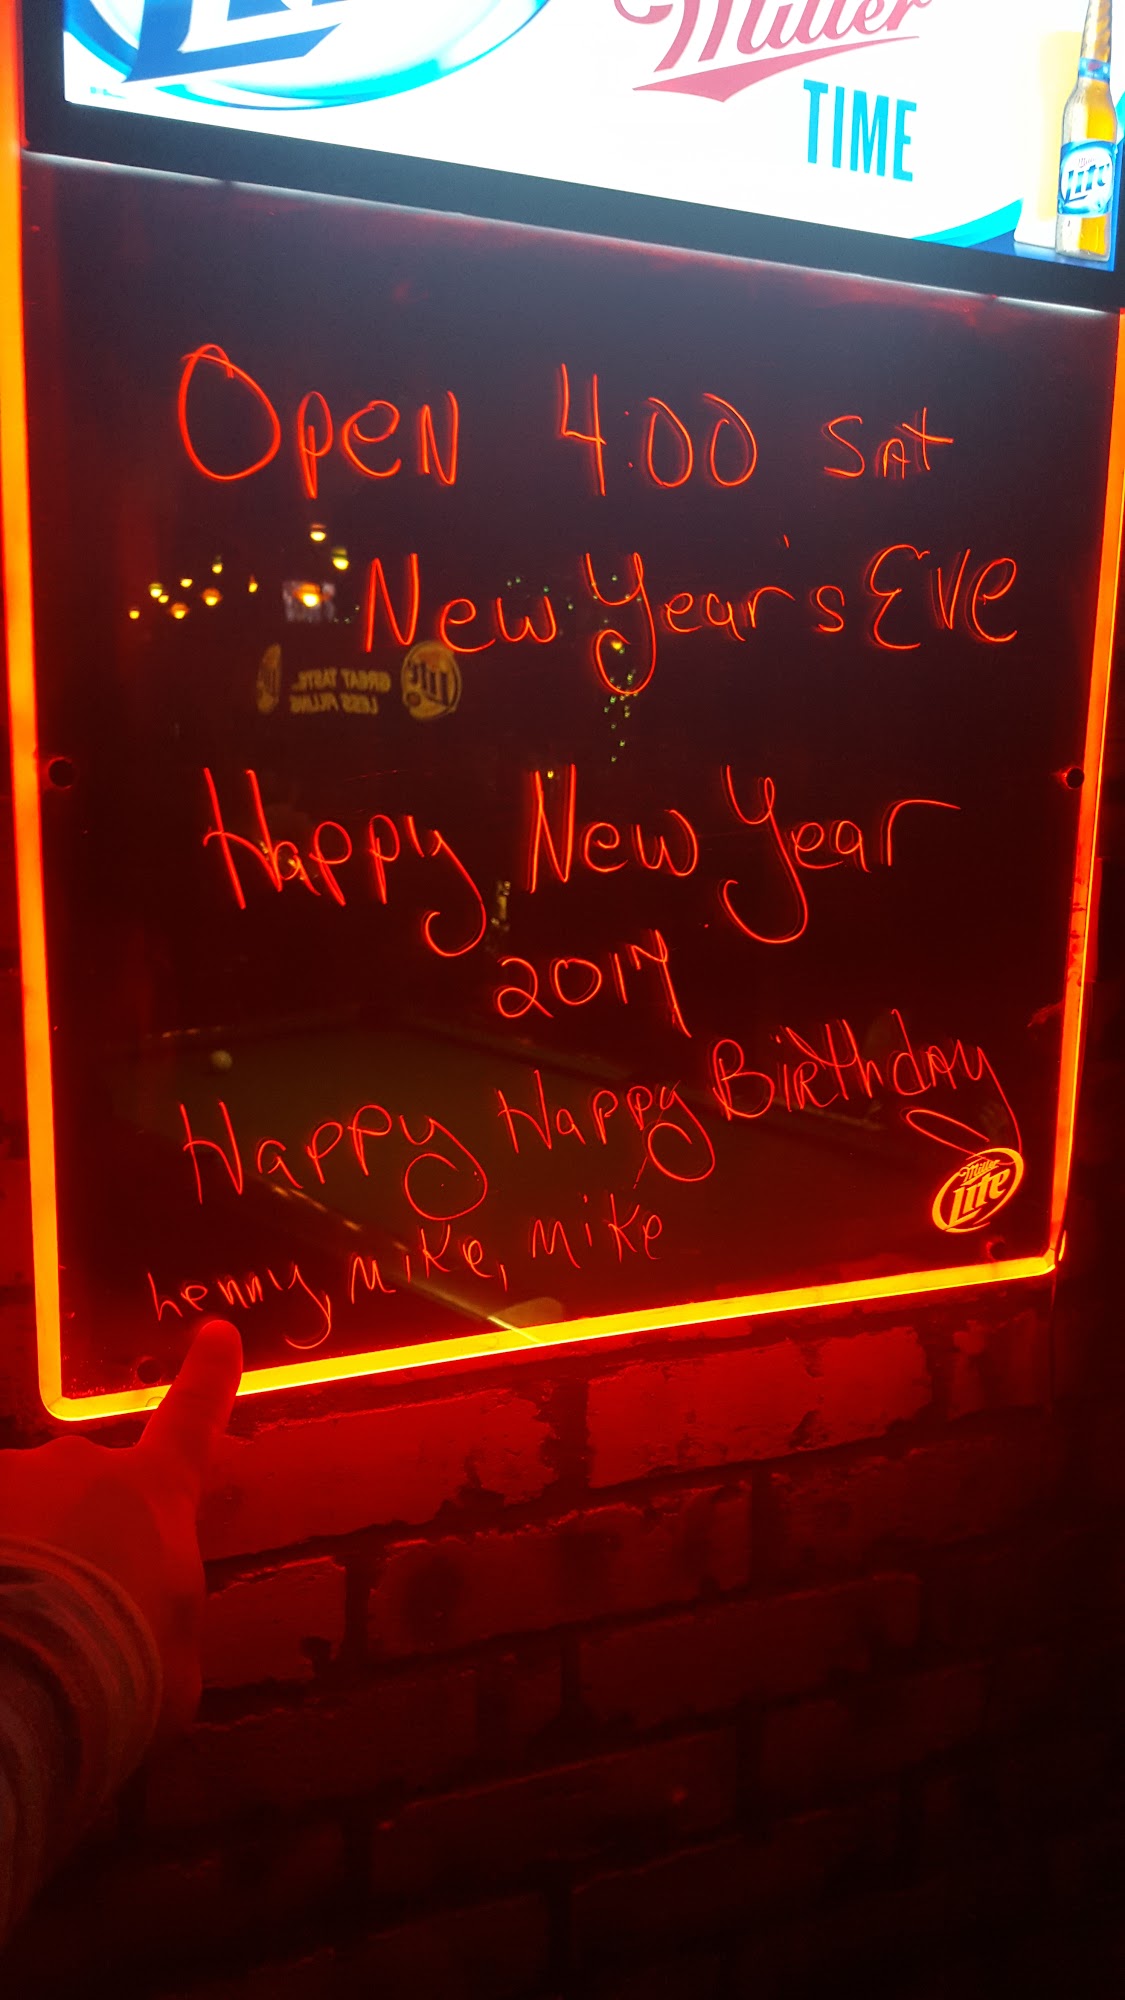 Miller
TIME
Lite
Open 4:00 Sat
New Year's Eve
GREAT TASTE..
LESS FILLING
Lite
Happy New Year
2017
Happy Happy Birthday
Lenny, Mike, Mike
Miller
Lite